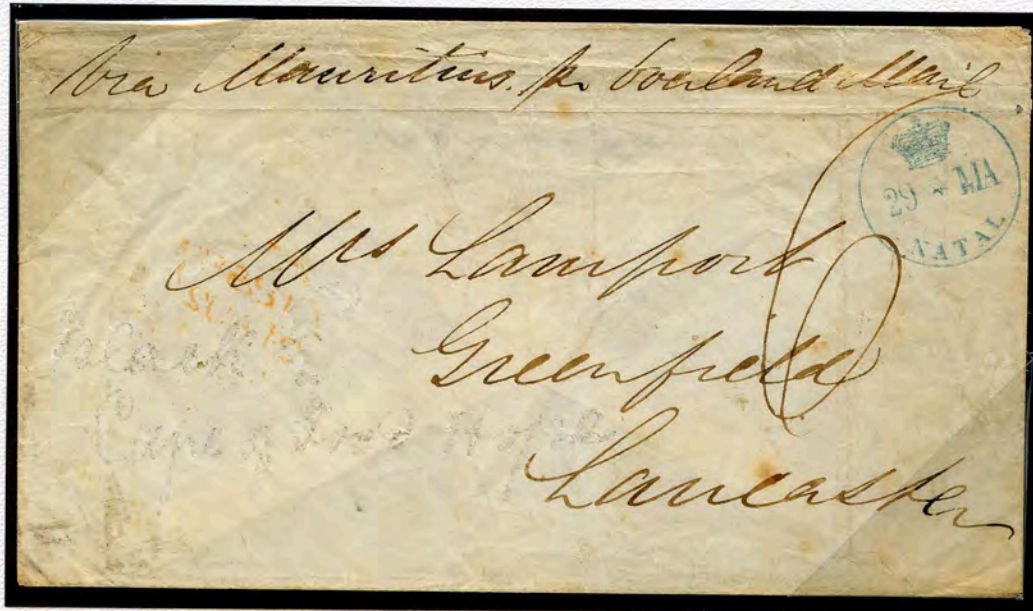 Via Mauritius. pr Overland Mail
29 MA
NATAL
Mrs Lamport
Greenfield
Lancaster
Cape of Good Hope